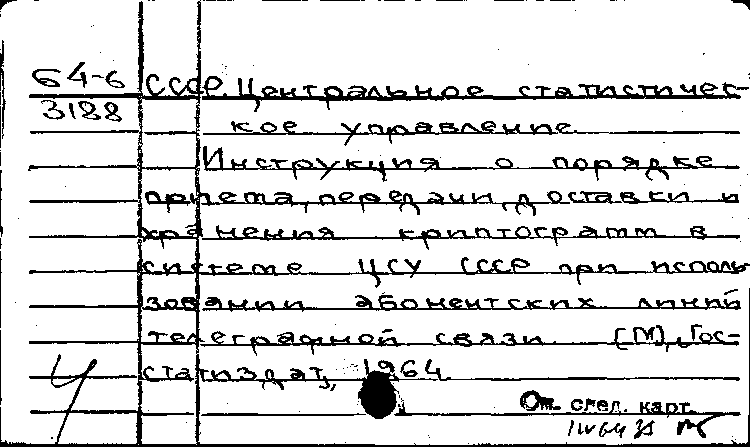 64-6 СССР. Центральное статистичес-
3188 кое управление.
Инструкция о порядке
приема, передачи, доставки и
хранения криптограмм в
системе ЦСУ СССР при исполь
зовании абонентских линий
телеграфной связи. [М], Гос-
статиздат, 1964
См. след. карт.